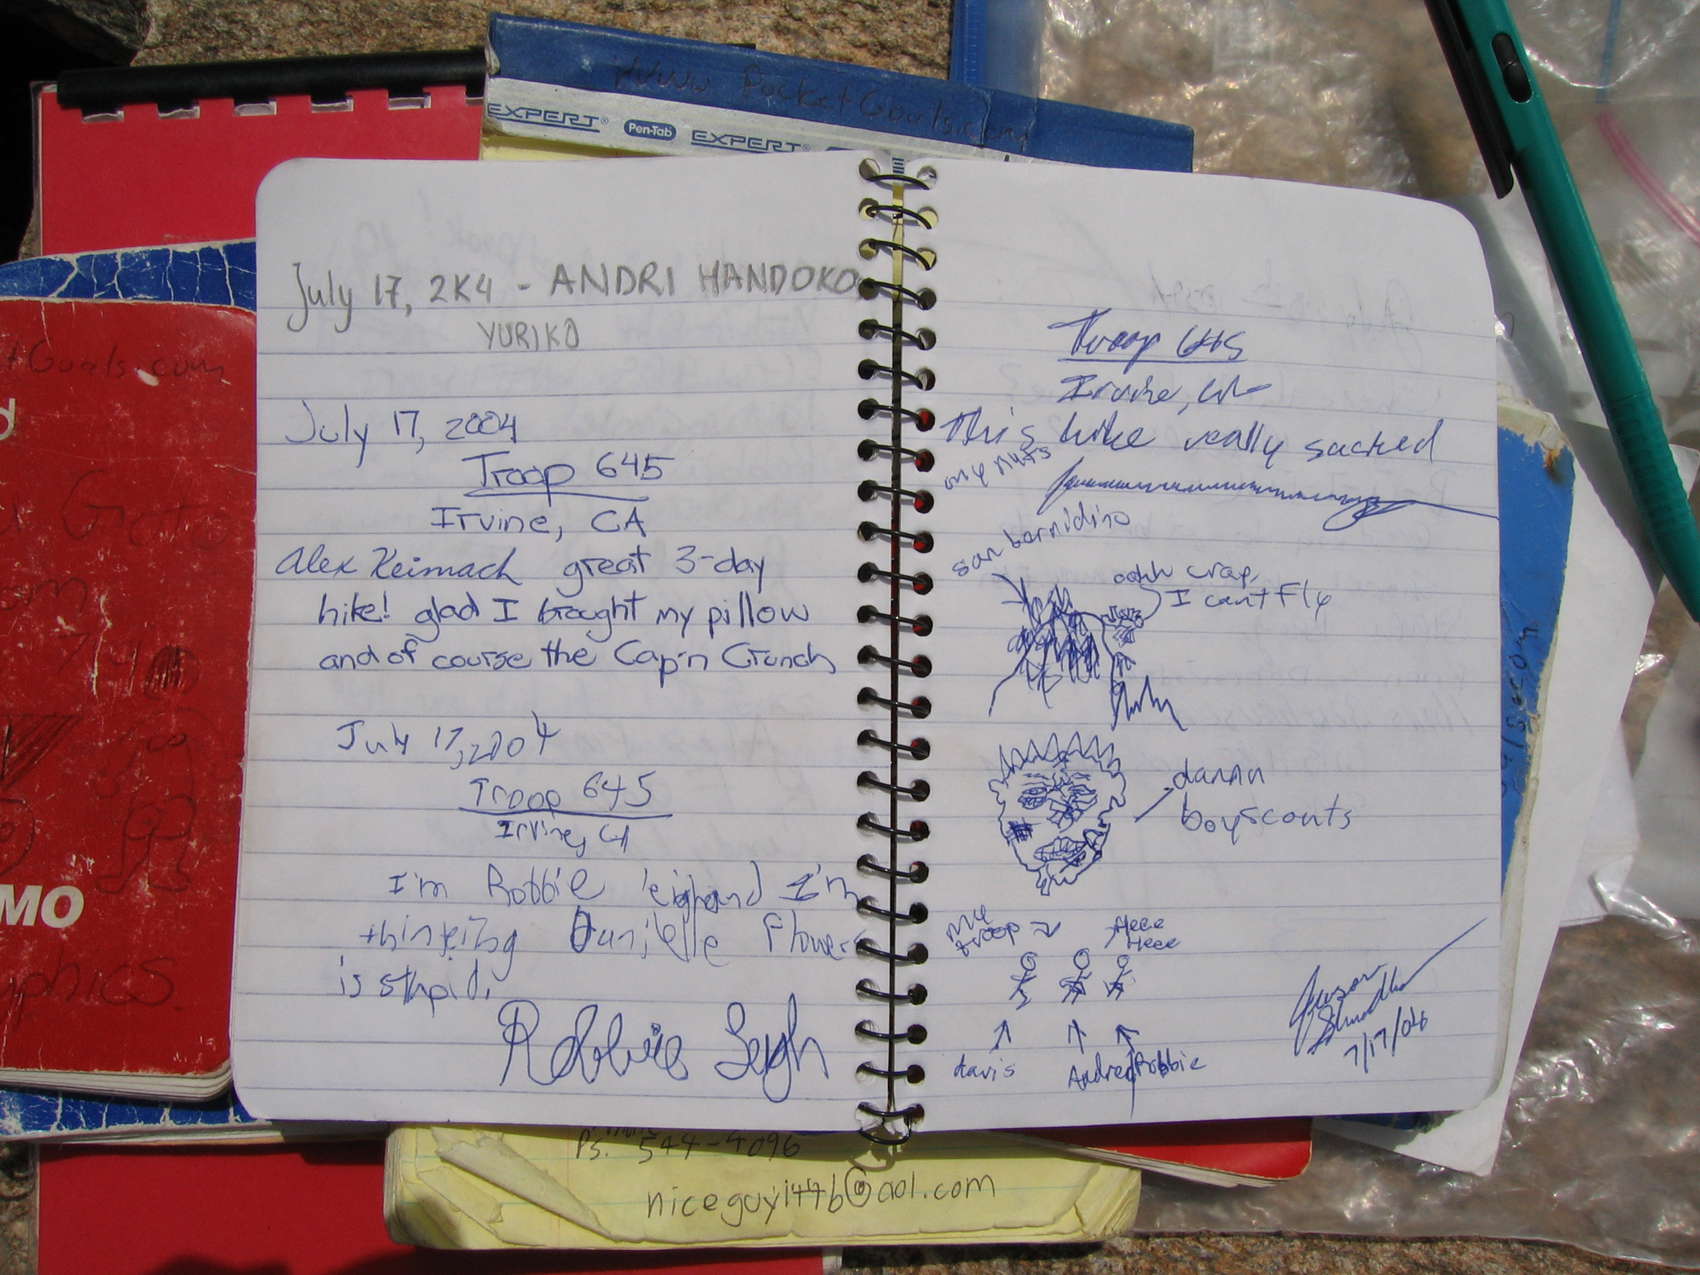 www PocketGoats.com
EXPERT Pen-Tab EXPERT
July 17, 2K4 - ANDRI HANDOKO
YURIKO
July 17, 2004
Troop 645
Irvine, CA
Alex Keimach great 3-day
hike! glad I brought my pillow
and of course the Cap'n Crunch
July 17, 2004
Troop 645
Irvine, CA
I'm Robbie leigh and I'm
thinking Danielle Flowers
is stupid.
Robbie Leigh
Troop 645
Irvine, CA
This hike really sacked
my nuts
san bernidino
oohh crap,
I cant Fly
damn
boyscouts
my
troop
Heee
Heee
davis
Andrea
Robbie
Jason
7/17/04
tGoats.com
MO
aphics
Ps. 544-4096
@aol.com